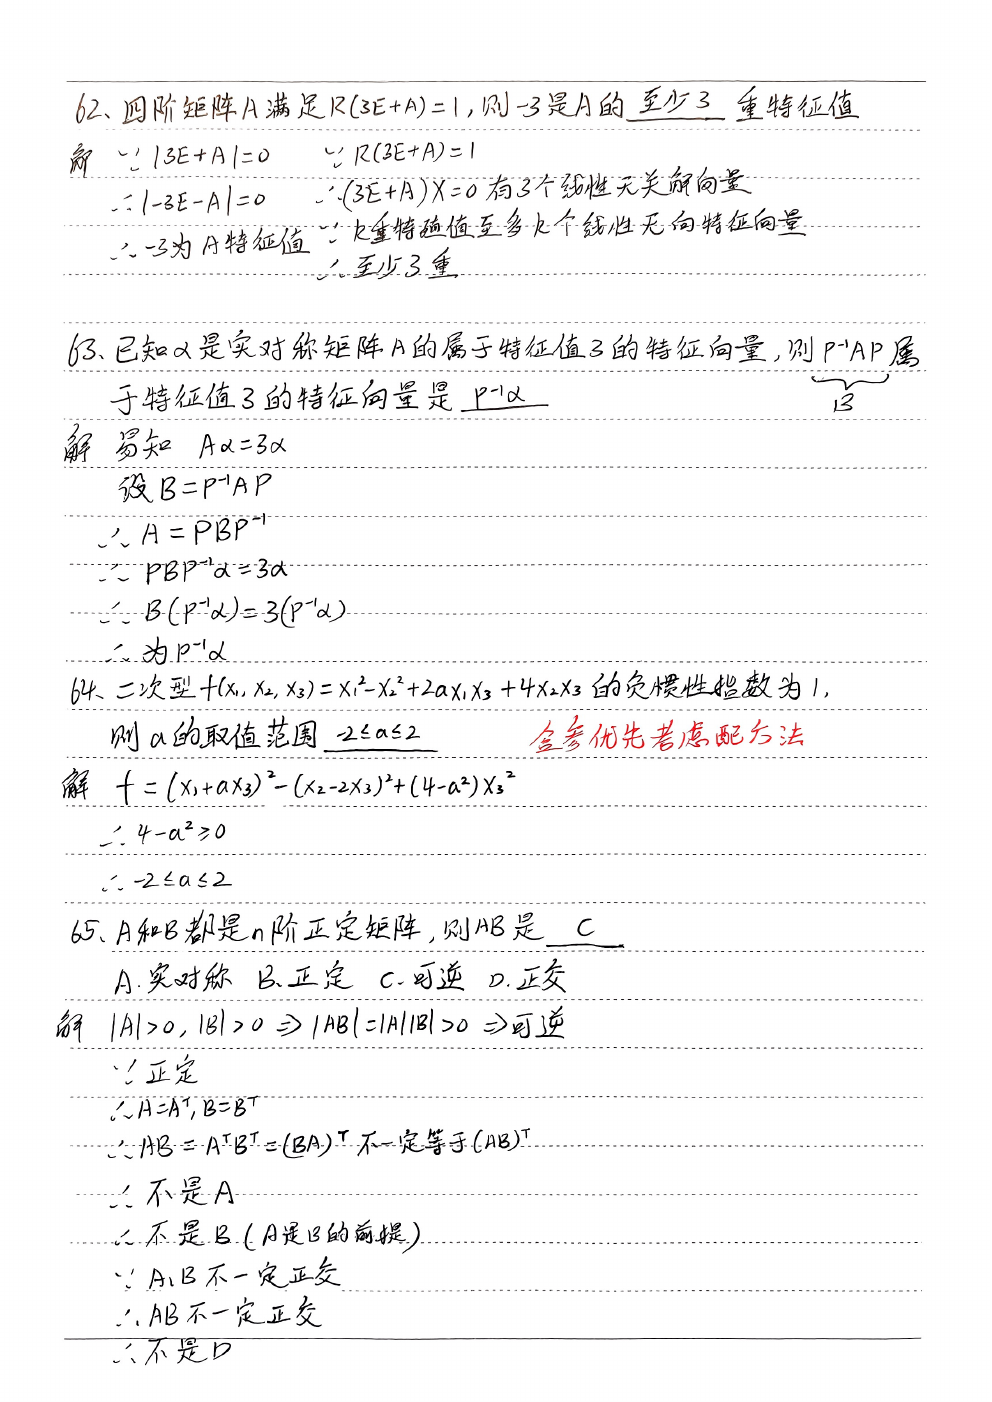 62、四阶矩阵A满足R(3E+A)=1,则-3是A的 至少3 重特征值
解 ∵ |3E+A|=0 ∵ R(3E+A)=1
∴|-3E-A|=0 ∴(3E+A)X=0有3个线性无关解向量
∴-3为A特征值 ∵ k重特征值至多k个线性无向特征向量
∴至少3重
63、已知α是实对称矩阵A的属于特征值3的特征向量,则P⁻¹AP属
B
于特征值3的特征向量是 P⁻¹α
解 易知 Aα=3α
设B=P⁻¹AP
∴ A=PBP⁻¹
∴ PBP⁻¹α=3α
∴ B(P⁻¹α)=3(P⁻¹α)
∴ 为P⁻¹α
64、二次型f(x₁,x₂,x₃)=x₁²-x₂²+2ax₁x₃+4x₂x₃的负惯性指数为1,
则a的取值范围 -2≤a≤2 含参优先考虑配方法
解 f=(x₁+ax₃)²-(x₂-2x₃)²+(4-a²)x₃²
∴ 4-a²≥0
∴ -2≤a≤2
65、A和B都是n阶正定矩阵,则AB是 C
A.实对称 B.正定 C.可逆 D.正交
解 |A|>0,|B|>0⇒|AB|=|A||B|>0⇒可逆
∵ 正定
∴A=Aᵀ,B=Bᵀ
∴AB=AᵀBᵀ=(BA)ᵀ不一定等于(AB)ᵀ
∴ 不是A
∴ 不是B(A是B的前提)
∵ A、B不一定正交
∴ AB不一定正交
∴ 不是D